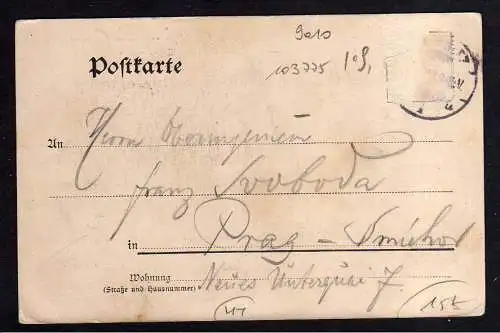 9010
103775 10,
Postkarte
An Herrn Oberingenieur
Franz Svoboda
in Prag - Smichov
Wohnung Neues Unterquai 7
(Straße und Hausnummer)
15t